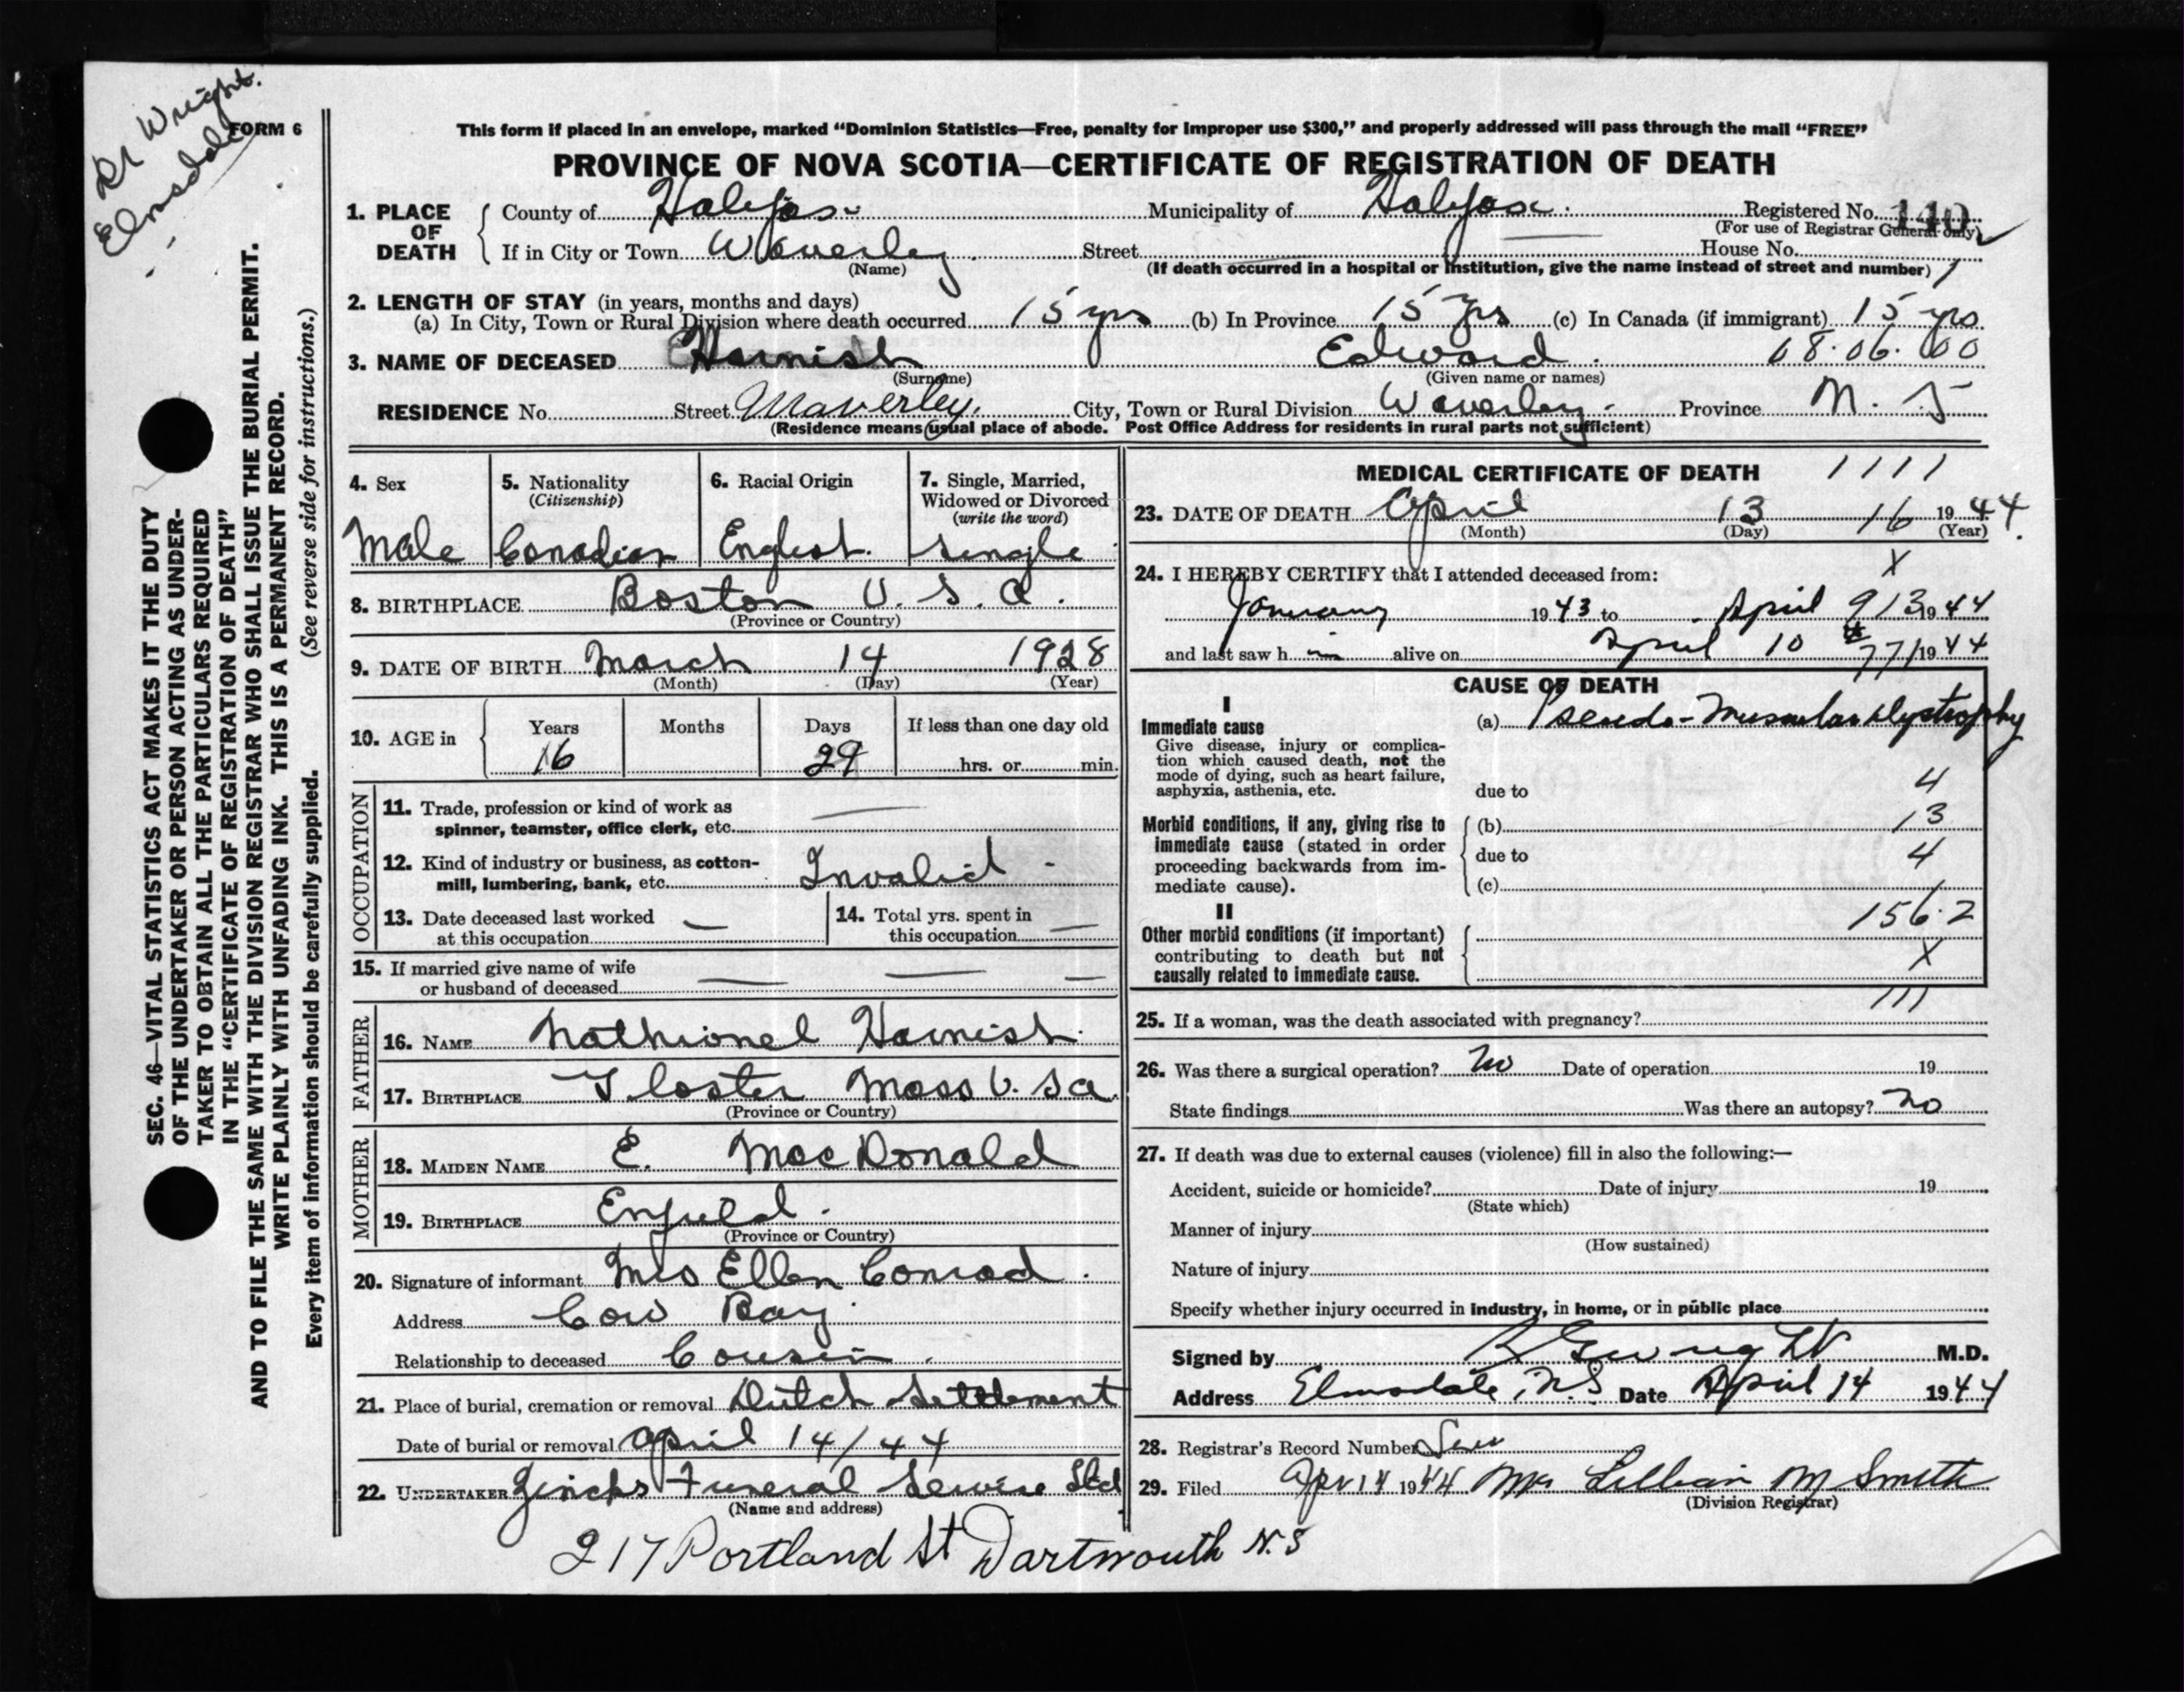 Dr Wright.
Elmsdale
FORM 6
This form if placed in an envelope, marked "Dominion Statistics—Free, penalty for improper use $300," and properly addressed will pass through the mail "FREE"
PROVINCE OF NOVA SCOTIA—CERTIFICATE OF REGISTRATION OF DEATH
1. PLACE OF DEATH County of Halifax Municipality of Halifax. Registered No. 140
(For use of Registrar General only)
If in City or Town Waverley. Street House No.
(Name) (If death occurred in a hospital or institution, give the name instead of street and number) 1
2. LENGTH OF STAY (in years, months and days)
(a) In City, Town or Rural Division where death occurred 15 yrs (b) In Province 15 yrs (c) In Canada (if immigrant) 15 yrs
3. NAME OF DECEASED Harnish Edward. 08.06.00
(Surname) (Given name or names)
RESIDENCE No. Street Waverley. City, Town or Rural Division Waverley. Province N. S
(Residence means usual place of abode. Post Office Address for residents in rural parts not sufficient)
SEC. 46—VITAL STATISTICS ACT MAKES IT THE DUTY
OF THE UNDERTAKER OR PERSON ACTING AS UNDER-
TAKER TO OBTAIN ALL THE PARTICULARS REQUIRED
IN THE "CERTIFICATE OF REGISTRATION OF DEATH"
AND TO FILE THE SAME WITH THE DIVISION REGISTRAR WHO SHALL ISSUE THE BURIAL PERMIT.
WRITE PLAINLY WITH UNFADING INK. THIS IS A PERMANENT RECORD.
Every item of information should be carefully supplied. (See reverse side for instructions.)
4. Sex 5. Nationality 6. Racial Origin 7. Single, Married,
(Citizenship) Widowed or Divorced
(write the word)
Male Canadian English. Single
8. BIRTHPLACE Boston U. S. A.
(Province or Country)
9. DATE OF BIRTH March 14 1928
(Month) (Day) (Year)
10. AGE in Years Months Days If less than one day old
16 29 hrs. or min.
OCCUPATION
11. Trade, profession or kind of work as
spinner, teamster, office clerk, etc. —
12. Kind of industry or business, as cotton-
mill, lumbering, bank, etc. Invalid -
13. Date deceased last worked — 14. Total yrs. spent in
at this occupation this occupation —
15. If married give name of wife — — —
or husband of deceased
FATHER
16. NAME Nathionel Harnish.
17. BIRTHPLACE Gloster Mass U. S a.
(Province or Country)
MOTHER
18. MAIDEN NAME E. MacDonald
19. BIRTHPLACE Enfield.
(Province or Country)
20. Signature of informant Mrs Ellen Conrad.
Address Cow Bay.
Relationship to deceased Cousin.
21. Place of burial, cremation or removal Dutch Settlement
Date of burial or removal April 14/44
22. UNDERTAKER Zincks Funeral Service Ltd
(Name and address)
217 Portland St Dartmouth N.S
MEDICAL CERTIFICATE OF DEATH 1111
23. DATE OF DEATH April 13 16 1944.
(Month) (Day) (Year)
X
24. I HEREBY CERTIFY that I attended deceased from:
January 1943 to April 913 1944
and last saw h im alive on April 10 th 771 1944
CAUSE OF DEATH
I
Immediate cause (a) Pseudo-Muscular dystrophy
Give disease, injury or complica-
tion which caused death, not the
mode of dying, such as heart failure,
asphyxia, asthenia, etc. due to 4
Morbid conditions, if any, giving rise to (b) 13
immediate cause (stated in order due to 4
proceeding backwards from im-
mediate cause). (c)
II 156.2
Other morbid conditions (if important)
contributing to death but not X
causally related to immediate cause.
111
25. If a woman, was the death associated with pregnancy?
26. Was there a surgical operation? No Date of operation 19
State findings Was there an autopsy? No
27. If death was due to external causes (violence) fill in also the following:—
Accident, suicide or homicide? Date of injury 19
(State which)
Manner of injury
(How sustained)
Nature of injury
Specify whether injury occurred in industry, in home, or in public place
Signed by Wright M.D.
Address Elmsdale, N.S. Date April 14 1944
28. Registrar's Record Number
29. Filed Apr 14 1944 Mrs Lillian M Smith
(Division Registrar)